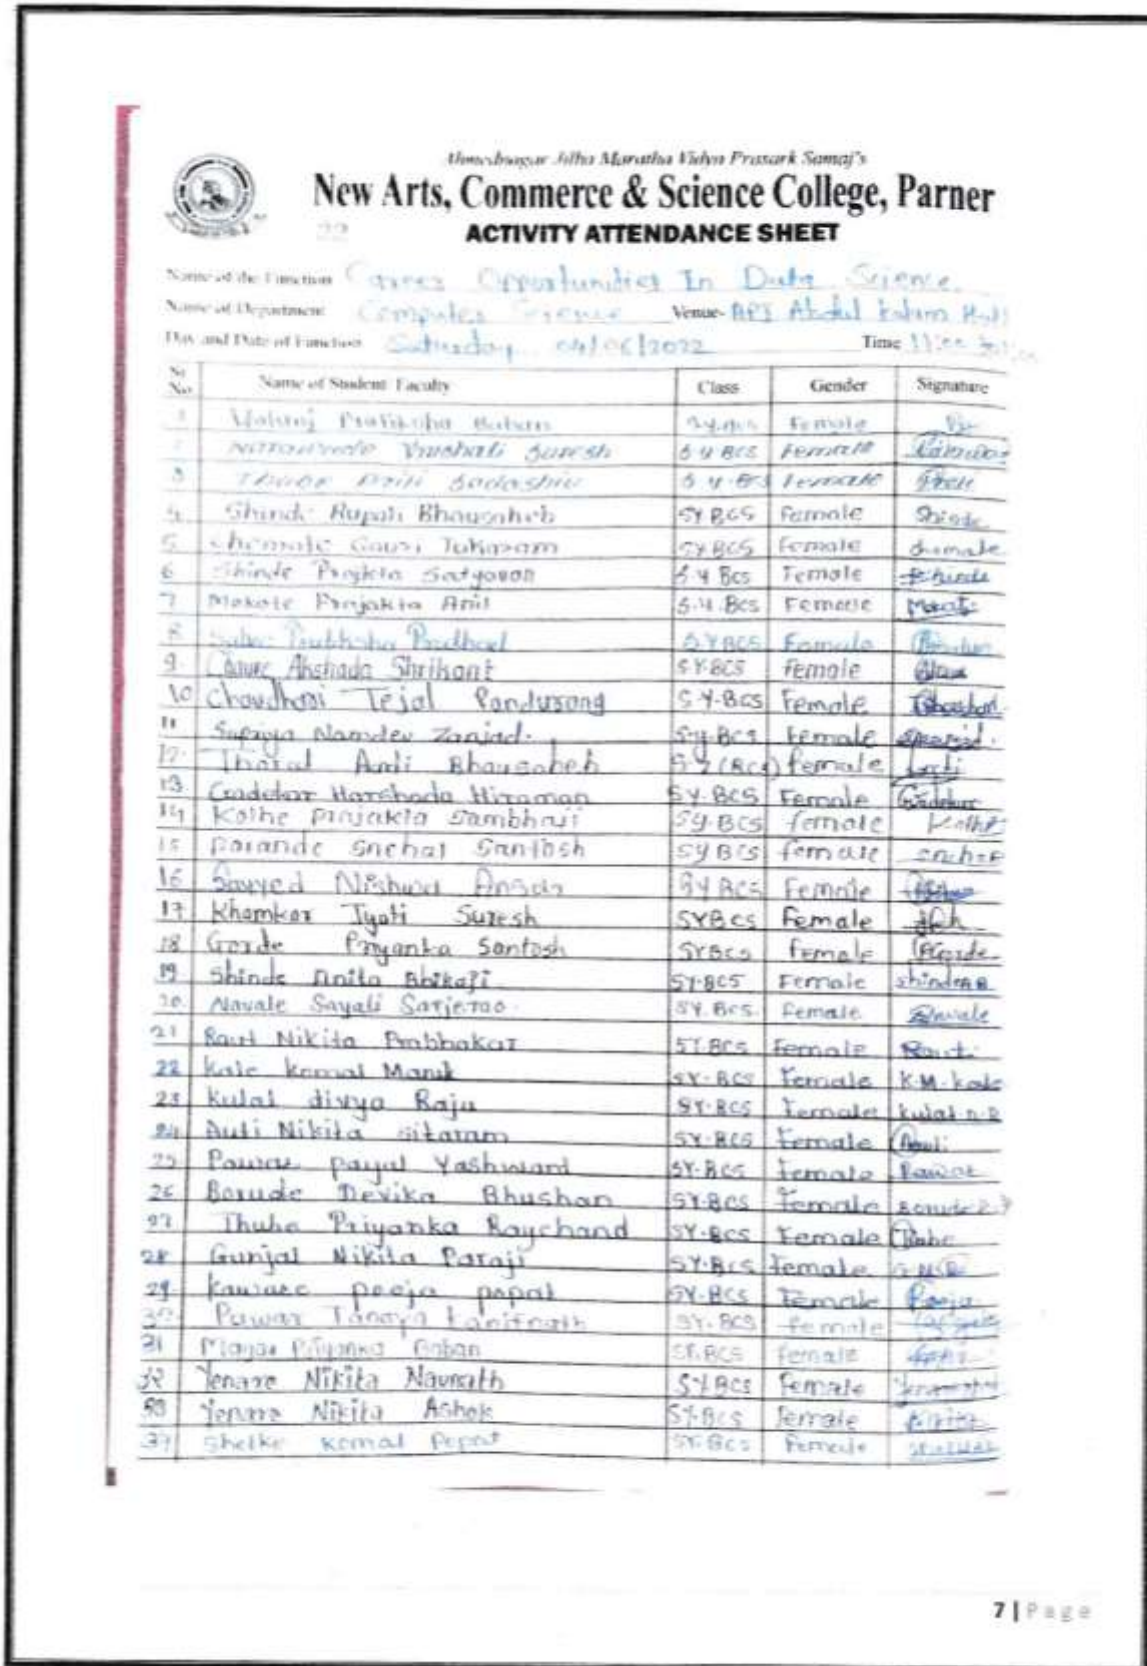 Ahmednagar Jilha Maratha Vidya Prasark Samaj's
New Arts, Commerce & Science College, Parner
22
ACTIVITY ATTENDANCE SHEET
Name of the Function Career Opportunities In Data Science
Name of Department Computer Science Venue- APJ Abdul Kalam Hall
Day and Date of Function Saturday 04/06/2022 Time 11:00
Sr No Name of Student Faculty Class Gender Signature
1 Female
2 Vaishali Suresh S.Y BCS Female
3 Thube Priti Sadashiv S.Y.BCS Female
4 Shinde Rupali Bhausaheb SY BCS Female Shinde
5 Chemate Gauri Tukaram SY BCS Female
6 Shinde Prajkta Satyavan S.Y BCS Female Shinde
7 Mokate Prajakta Anil S.Y.BCS Female
8 S.Y BCS Female
9. Akshada Shrikant SY-BCS Female
10 Choudhari Tejal Pandurang S.Y-BCS Female
11 Supriya Namdev Zanjad. S-Y-BCS Female
12. Bhausaheb S.Y (BCS) female
13. Gadekar Harshada Hiraman SY-BCS Female Gadekar
14 Kolhe Prajakta Sambhaji SY-BCS female Kolhe
15 Parande Snehal Santosh SY BCS female
16 Sayyed Ansar SY BCS Female
17 Khamkar Jyoti Suresh SYBCS Female
18 Gorde Priyanka Santosh SYBCS Female Gorde
19 Shinde Anita Bhikaji SY-BCS Female ShindeA.B.
20. Navale Sayali Sarjerao. SY.BCS. Female
21 Raut Nikita Prabhakar SY.BCS Female Raut
22 Kale Komal Manik SY-BCS Female K.M.kale
23 Kulal divya Raju SY-BCS Female kulal D.R
24 Auti Nikita sitaram SY-BCS Female Auti
25 Pawar payal Yashwant SY-BCS Female Pawar
26 Borude Devika Bhushan SY-BCS Female
27 Thube Priyanka Raychand SY-BCS Female
28 Gunjal Nikita Paraji SY-BCS Female
29. Kaware pooja popat SY-BCS Female Pooja
30 Pawar Tanaya Kanifnath SY-BCS female
31 Magar Priyanka Baban SY.BCS Female
32 Yenare Nikita Navnath SYBCS Female
33 Yenare Nikita Ashok SY-BCS Female Nikita
34 Shelke Komal Popat SY-BCS Female
7 | Page